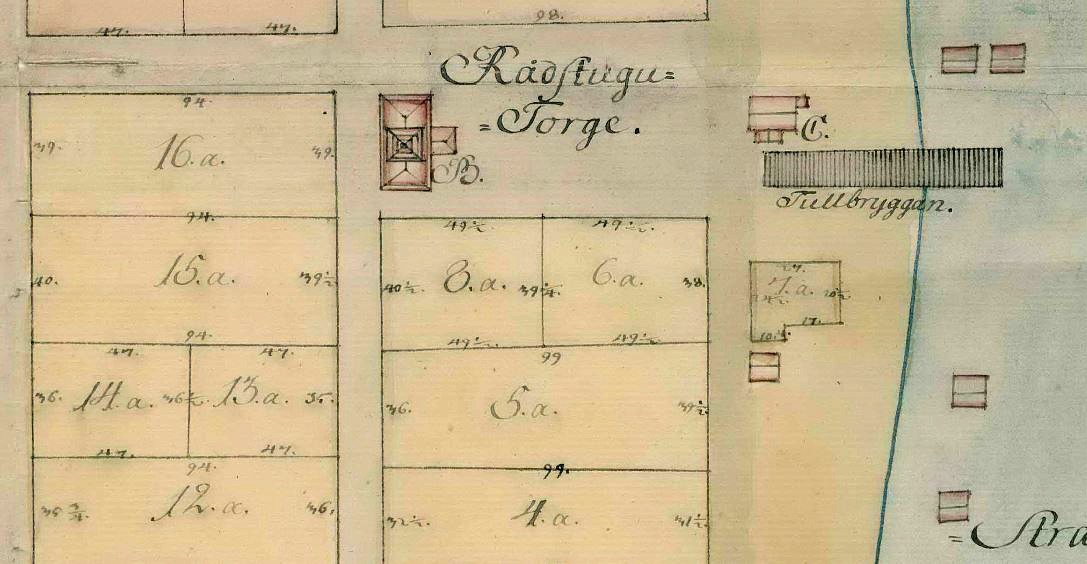 47.
47.
98.
Rådstugu=
=Torge.
94
39.
16.a.
39.
B.
C.
Tullbryggan.
94.
40.
15.a.
39½
94
49½
49½
40½
8.a.
39¼
6.a.
38.
49½
49½
27.
7.a.
17.
10.
47.
47.
36.
14.a.
13.a.
35.
47.
47.
99
36.
5.a.
39½
94.
35¾
12.a.
36.
99.
32½
4.a.
31½
=Stra